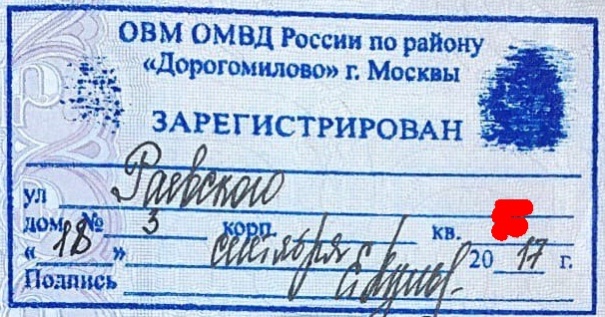 ОВМ ОМВД России по району
«Дорогомилово» г. Москвы
ЗАРЕГИСТРИРОВАН
ул Раевского
дом № 3 корп. кв.
«18» сентября 2017 г.
Подпись